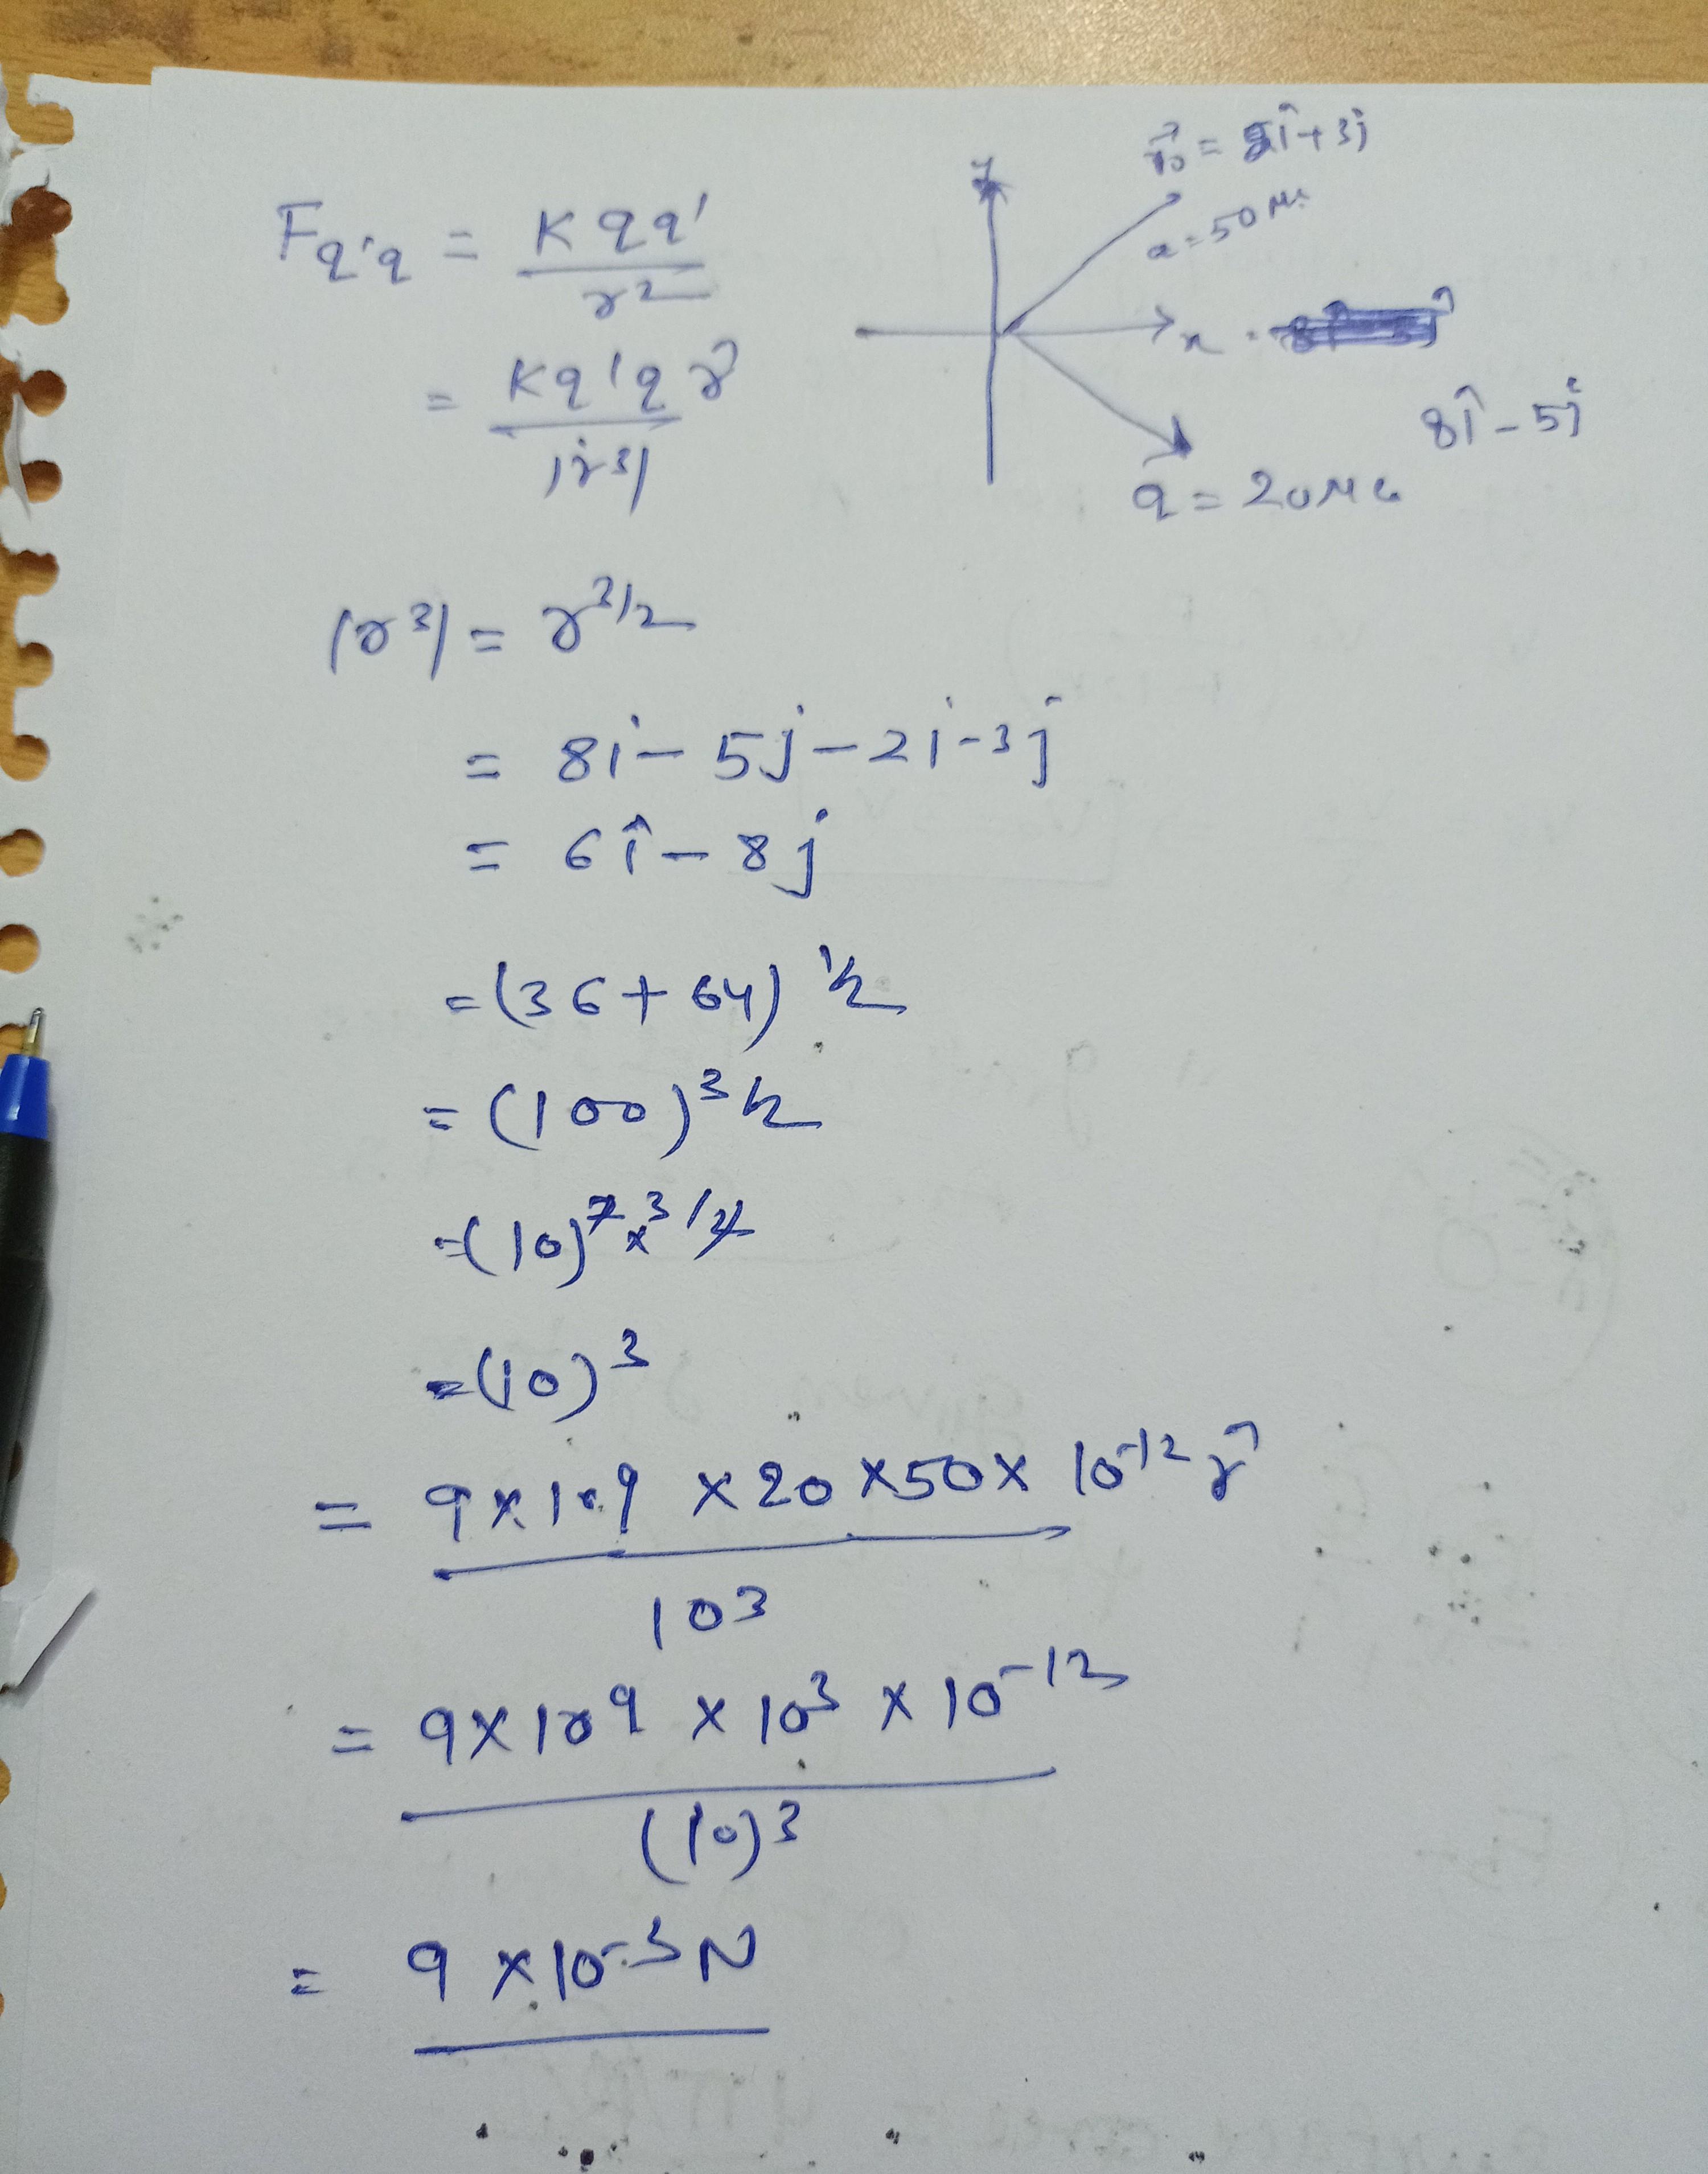 Fq'q = K q q' / r²
= K q' q r⃗ / |r³|
y
r⃗₀ = 2î + 3j
q = 50 μc
x
8î - 5j
q = 20 μc
|r³| = r^3/2
= 8i - 5j - 2i - 3j
= 6î - 8j
= (36 + 64)^1/2
= (100)^3/2
= (10)^2×3/2
= (10)³
= 9 × 10⁹ × 20 × 50 × 10⁻¹² r⃗ / 10³
= 9 × 10⁹ × 10³ × 10⁻¹² / (10)³
= 9 × 10⁻³ N